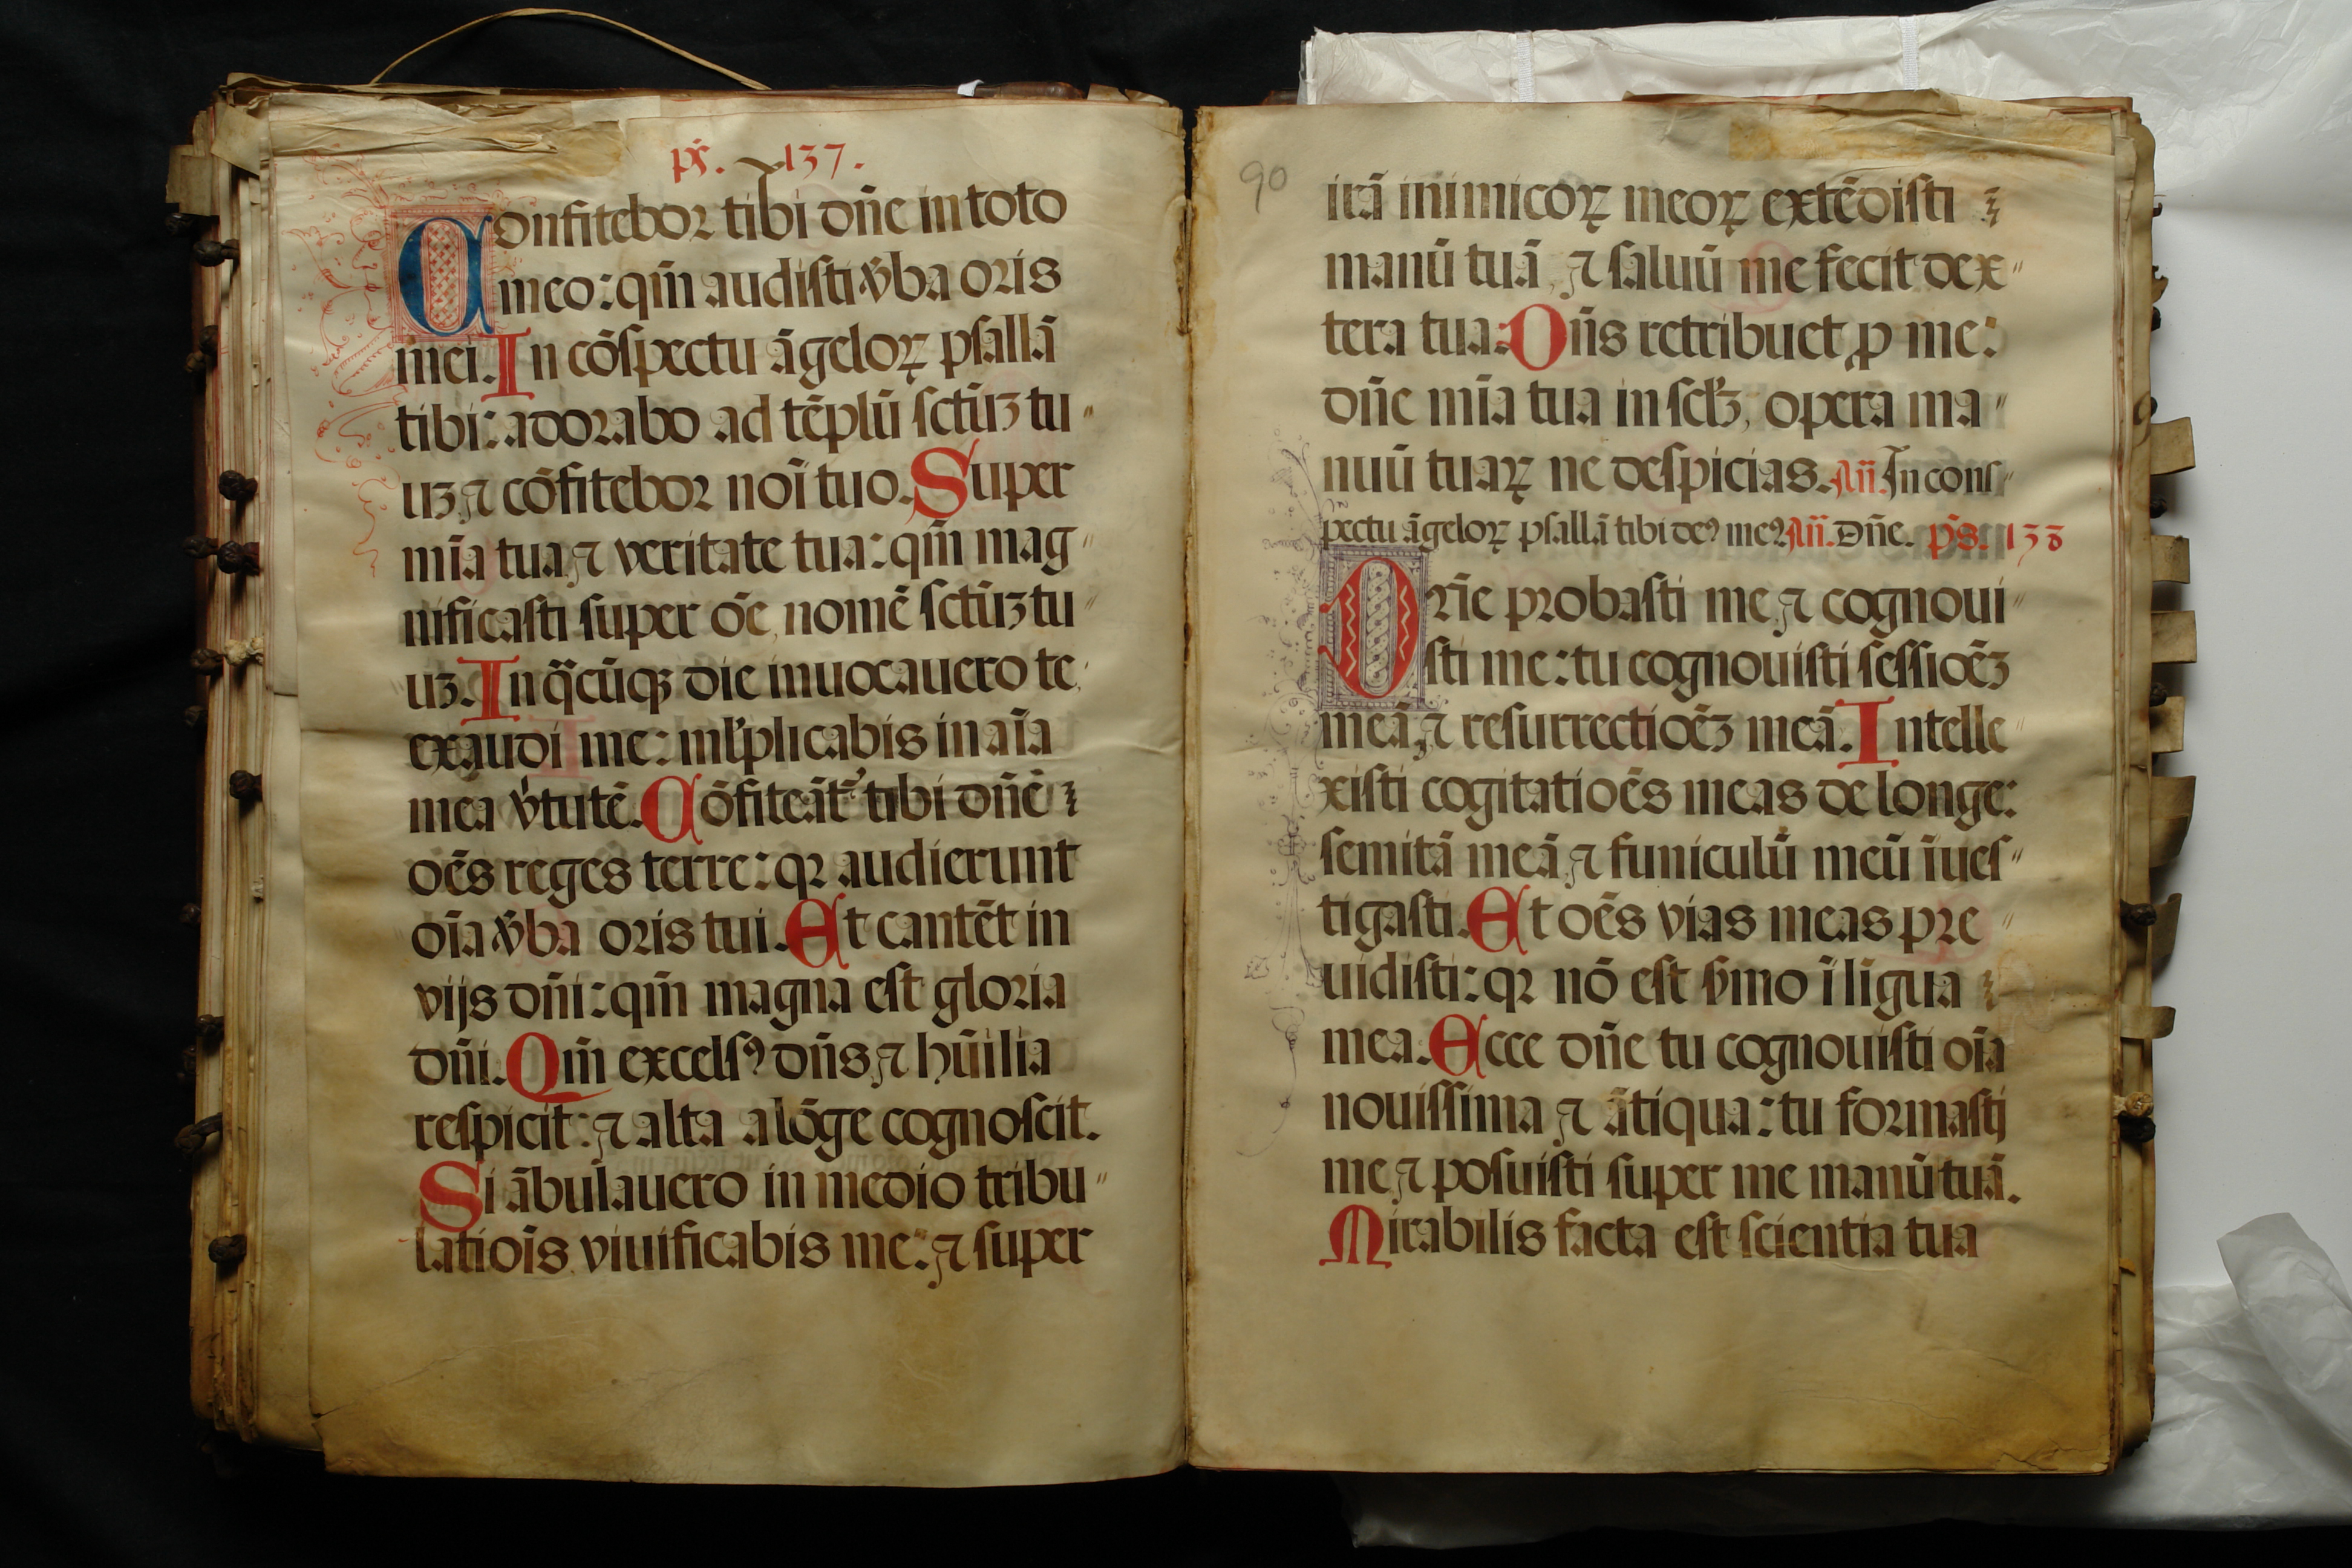 ps̃. 137.
Confitebor tibi dñe in toto
meo: qm̃ audisti v̾ba oris
mei. In cõspectu ãgeloꝝ psallã
tibi: adorabo ad tẽplũ sctũꝫ tu〃
uꝫ, ⁊ cõfitebor noĩ tuo. Super
mĩa tua, ⁊ veritate tua: qm̃ mag〃
nificasti super oẽ, nomẽ sctũꝫ tu〃
uꝫ. In q̃cũqꝫ die inuocauero te,
exaudi me: ml̾plicabis in aĩa
mea v̾tutẽ. Cõfiteãt᷑ tibi dñe
oẽs reges terre: qꝛ audierunt
oĩa v̾ba oris tui. Et cantẽt in
vijs dñi: qm̃ magna est gloria
dñi. Qm̃ excelsꝰ dñs, ⁊ hũilia
respicit: ⁊ alta a lõge cognoscit.
Si ãbulauero in medio tribu〃
latiõis viuificabis me: ⁊ super
90
irã inimicoꝝ meoꝝ extẽdisti
manũ tuã, ⁊ saluũ me fecit dex〃
tera tua. Dñs retribuet, ꝑ me:
dñe mĩa tua in secl̾ꝫ, opera ma〃
nuũ tuaꝝ ne despicias. Añ. In cons〃
pectu ãgeloꝝ psallã tibi deꝰ meꝰ Añ. Dñe. ps̃. 138
Dñe probasti me, ⁊ cognoui〃
sti me: tu cognouisti sessioẽꝫ
meã, ⁊ resurrectioẽꝫ meã. Intelle〃
xisti cogitatioẽs meas de longe:
semitã meã, ⁊ funiculũ meũ ĩues〃
tigasti. Et oẽs vias meas pre〃
uidisti: qꝛ nõ est s̾mo ĩ ligua
mea. Ecce dñe tu cognouisti oĩa
nouissima ⁊ ãtiqua: tu formastj
me, ⁊ posuisti super me manũ tuã.
Mirabilis facta est scientia tua